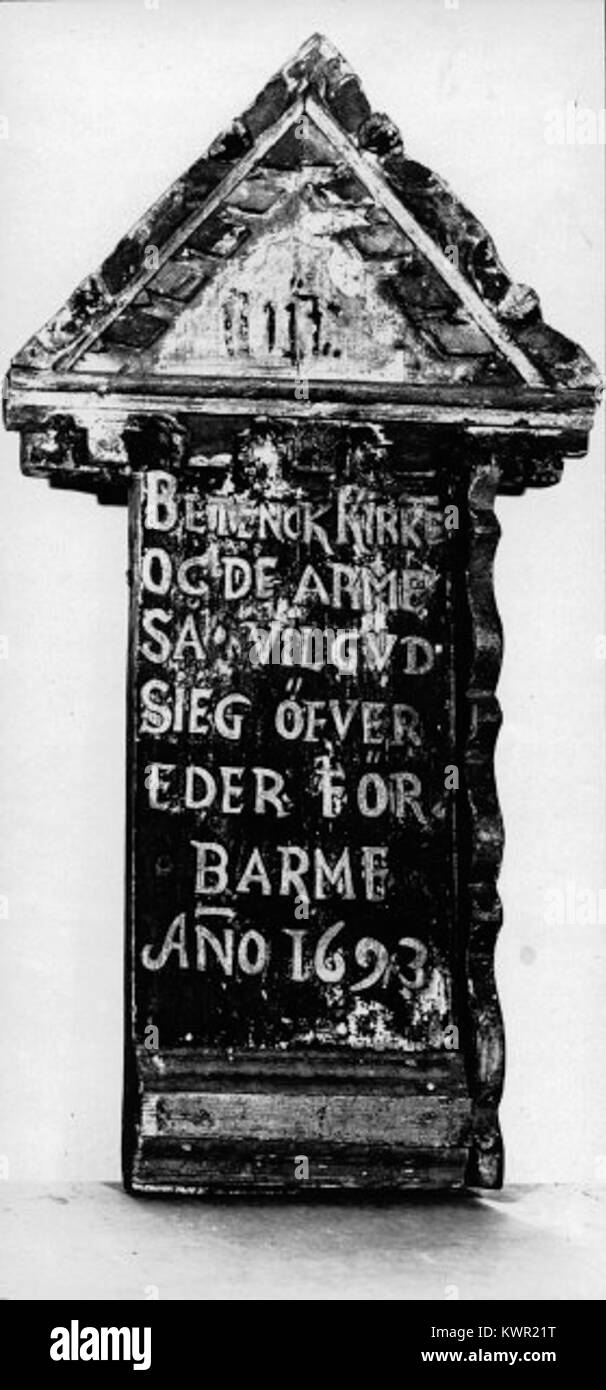 BETENCK KIRKE
OC DE ARME
SÅ VILGVD
SIEG ÖFVER
EDER FÖR
BARME
AÑO 1693
alamy
Image ID: KWR21T
www.alamy.com